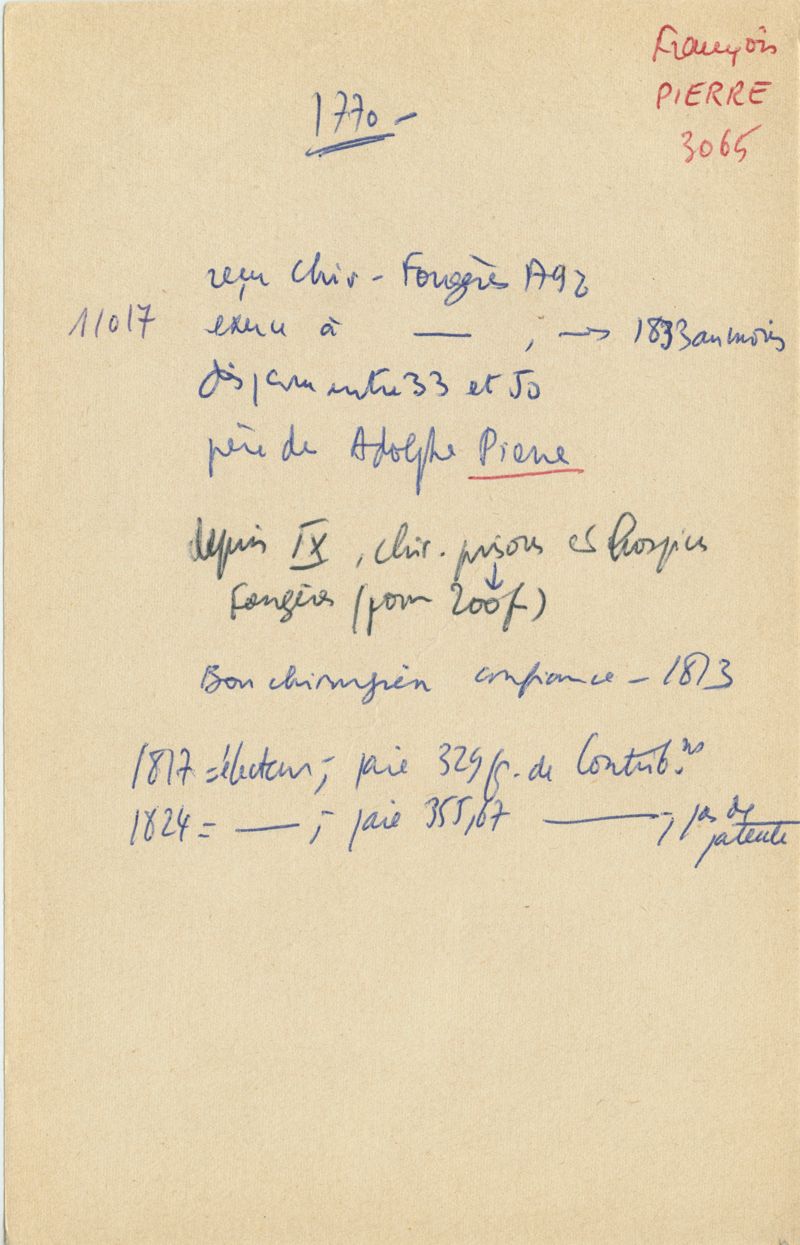 François
PIERRE
3065
1770 -
reçu Chir - Fougères 1792
11017 exerce à — , → 1833 au moins
disparu entre 33 et 50
père de Adolphe Pierre
depuis IX, chir. prisons et hospices
Fougères (pour 200f)
Bon chirurgien confiance - 1813
1817 = électeur, paie 329 f. de Contrib.ns
1824 = — , paie 355,67 — , pas de
patente